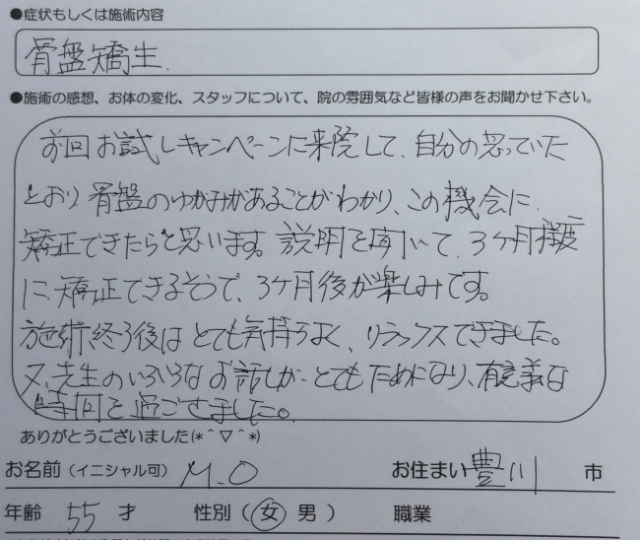 ●症状もしくは施術内容
骨盤矯生.
●施術の感想、お体の変化、スタッフについて、院の雰囲気など皆様の声をお聞かせ下さい。
前回お試しキャンペーンに来院して、自分の思っていた
とおり骨盤のゆがみがあることがわかり、この機会に
矯正できたらと思います。説明を聞いて、3ヶ月程度
に矯正できるそうで、3ヶ月後が楽しみです。
施術終了後はとても気持ちよく、リラックスできました。
又、先生のいろいろなお話しが、とてもためになり、有意義な
時間を過ごせました。
ありがとうございました(*＾▽＾*)
お名前(イニシャル可) M.O お住まい 豊川 市
年齢 55 才 性別(女 男) 職業